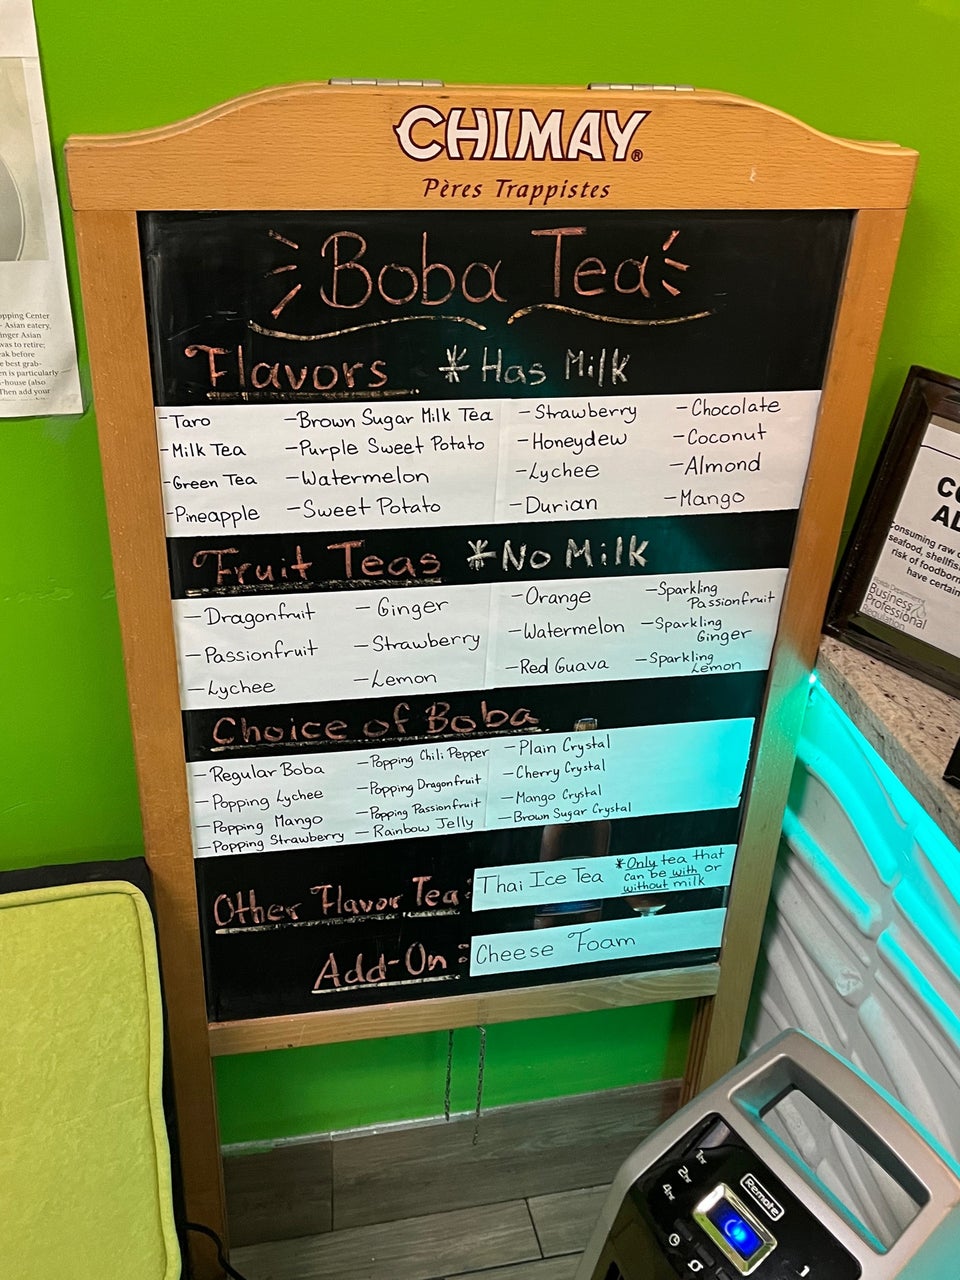 CHIMAY®
Pères Trappistes
Boba Tea
Flavors *Has Milk
-Taro
-Milk Tea
-Green Tea
-Pineapple
-Brown Sugar Milk Tea
-Purple Sweet Potato
-Watermelon
-Sweet Potato
-Strawberry
-Honeydew
-Lychee
-Durian
-Chocolate
-Coconut
-Almond
-Mango
Fruit Teas *No Milk
-Dragonfruit
-Passionfruit
-Lychee
-Ginger
-Strawberry
-Lemon
-Orange
-Watermelon
-Red Guava
-Sparkling
Passionfruit
-Sparkling
Ginger
-Sparkling
Lemon
Choice of Boba
-Regular Boba
-Popping Lychee
-Popping Mango
-Popping Strawberry
-Popping Chili Pepper
-Popping Dragonfruit
-Popping Passionfruit
-Rainbow Jelly
-Plain Crystal
-Cherry Crystal
-Mango Crystal
-Brown Sugar Crystal
Other Flavor Tea:
Thai Ice Tea
*Only tea that
can be with or
without milk
Add-On:
Cheese Foam
opping Center
- Asian eatery,
inger Asian
was to retire;
ak before
e best grab-
en is particularly
-house (also
Then add your
Consuming raw
seafood, shellfish
risk of foodborn
have certain
Business
Professional
Regulation
1hr
2hr
4hr
Remote